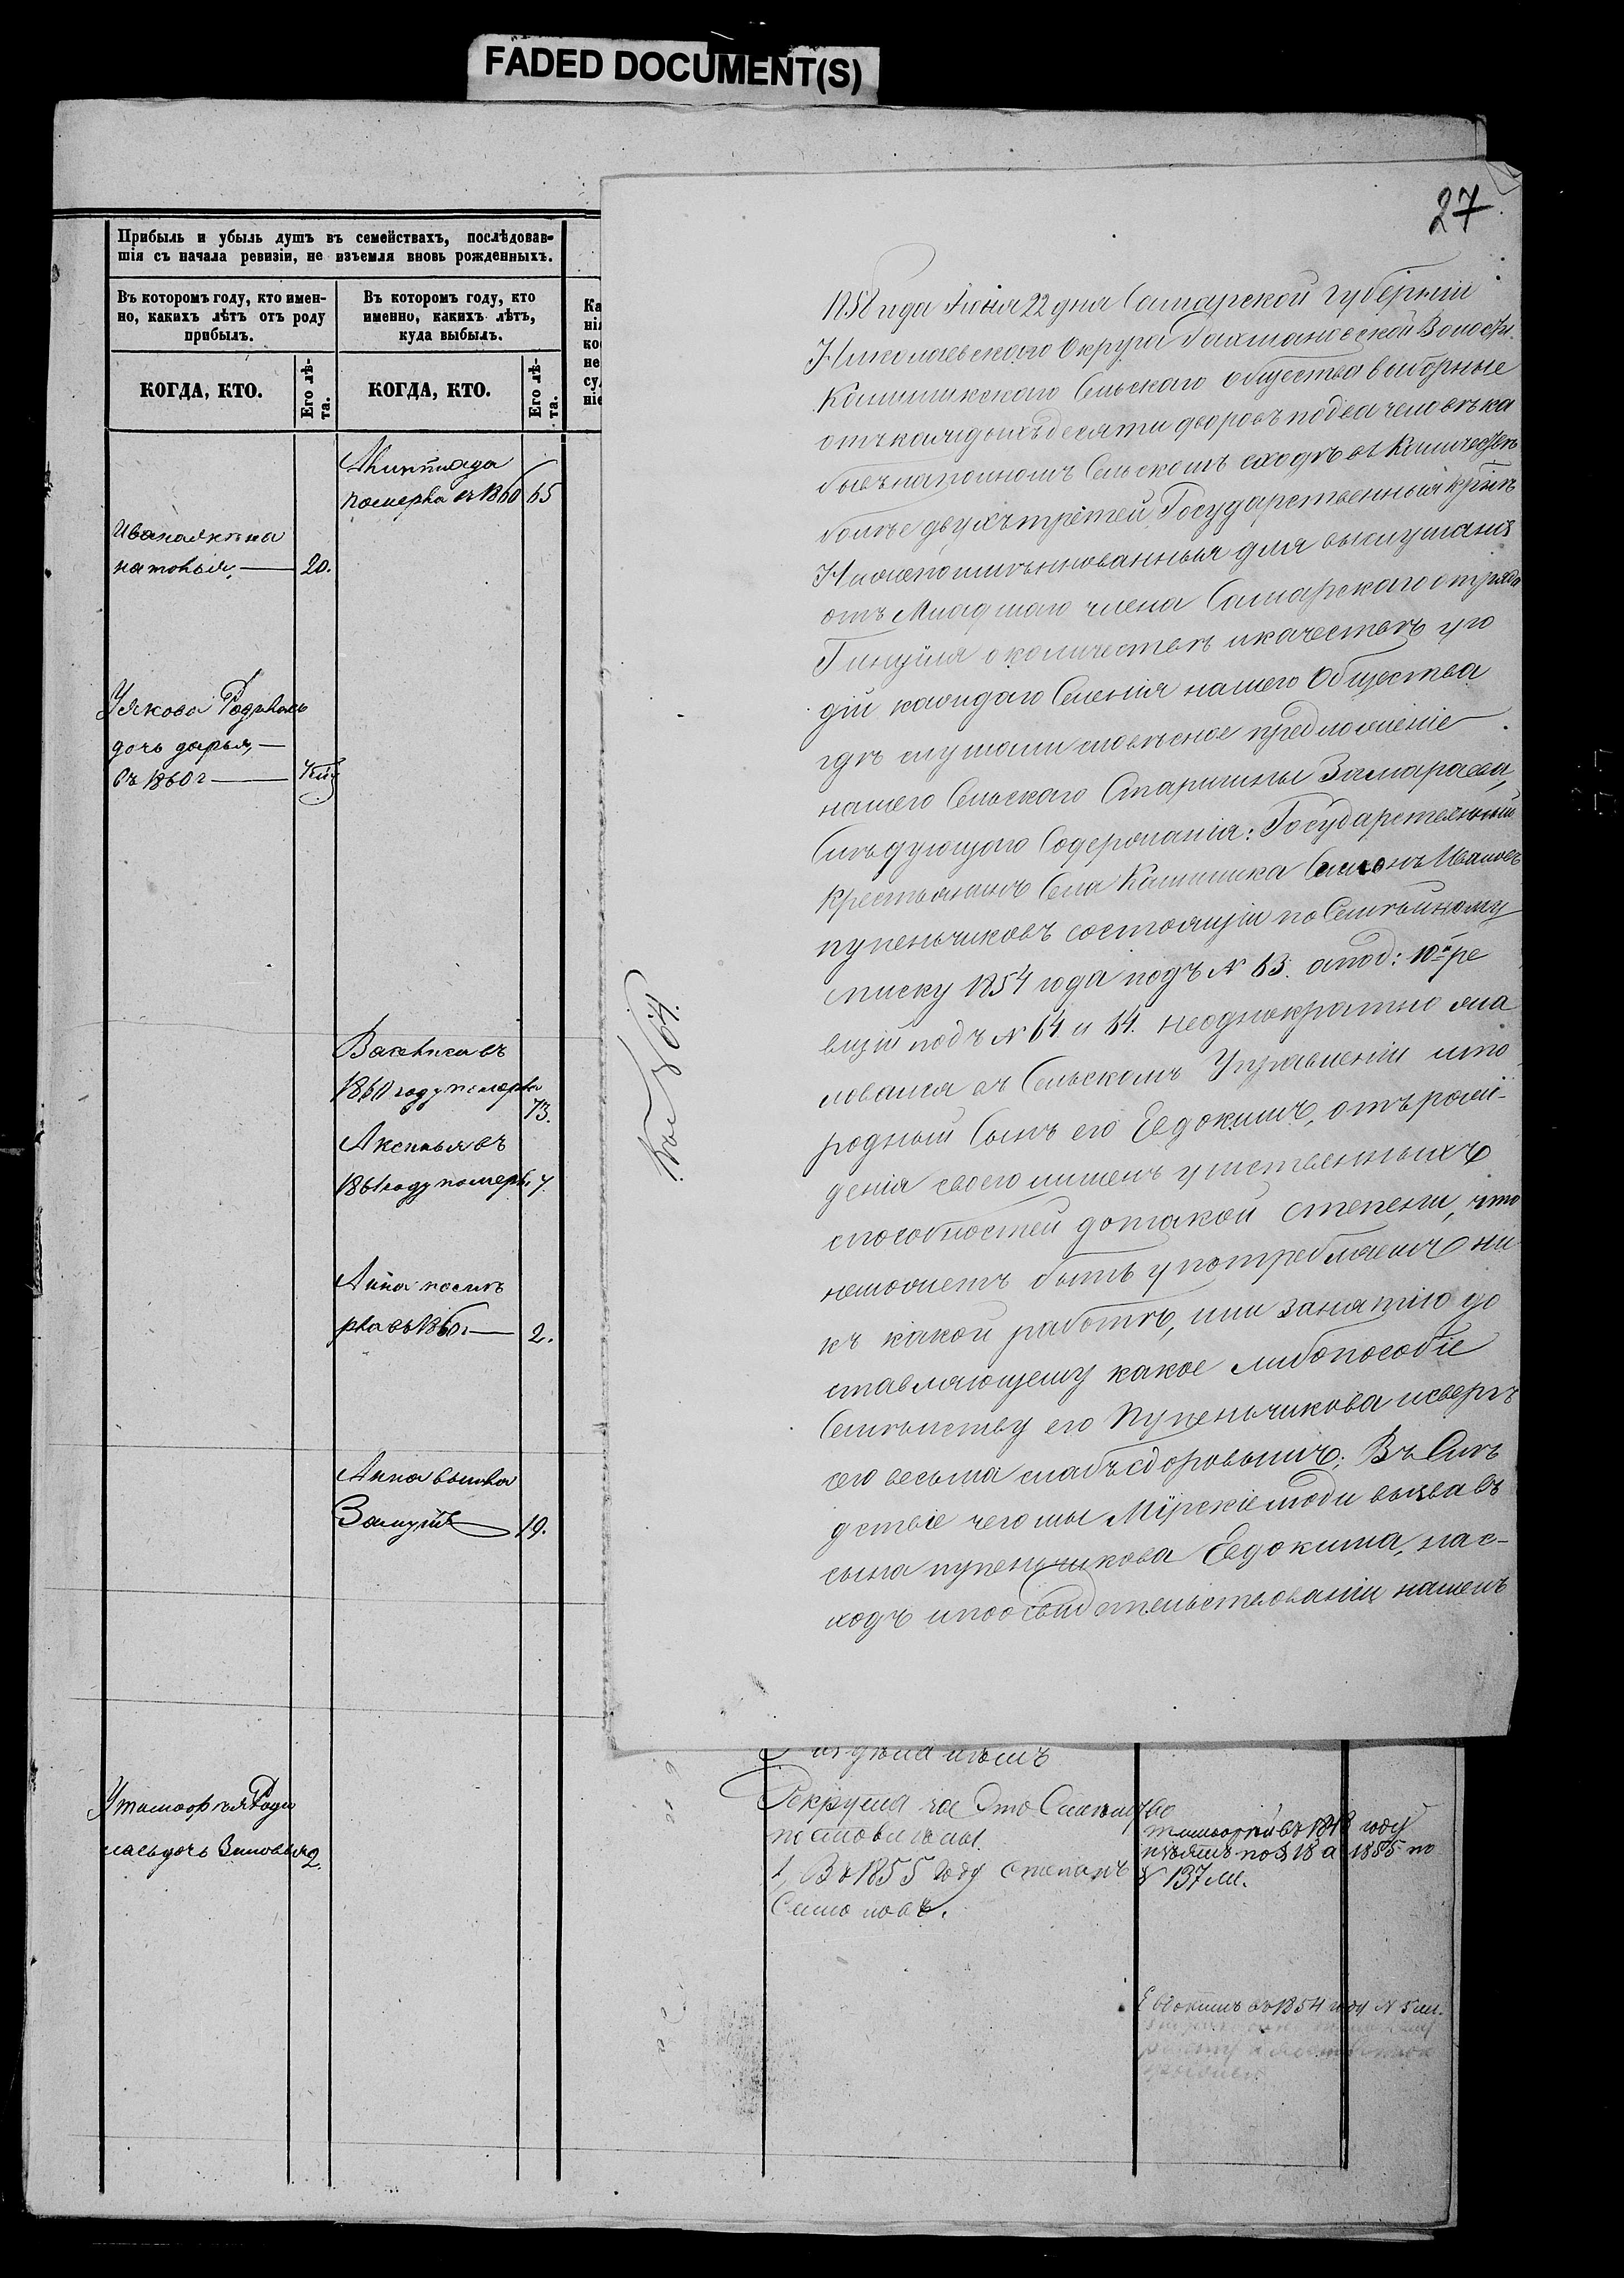 FADED DOCUMENT(S)
27
Прибыль и убыль душъ въ семействахъ, послѣдовав-
шія съ начала ревизіи, не изъемля вновь рожденныхъ.
Въ которомъ году, кто имен-
но, какихъ лѣтъ отъ роду
прибылъ.
Въ которомъ году, кто
именно, какихъ лѣтъ,
куда выбылъ.
КОГДА, КТО.
Его лѣ-
та.
КОГДА, КТО.
Его лѣ-
та.
Ка
ні
ко
не
су
ніе
померла въ 1860 65
20.
У Якова Родилась
дочь дарья,
въ 1860 г
Василиса въ
1860 году померла
73.
Аксинья въ
1861 году померла 7.
Анна поме
рла въ 1860 г. 2.
Анна вышла
Замужъ 19.
У тимофея Роди
лась дочь Зиновья 2.
Къ № 64.
1858 года Іюня 22 дня Самарской Губерніи
Николаевскаго Округа Рахмановской Волости
Камышкскаго Сельскаго общества выборные
отъ каждыхъ десяти дворовъ по два человѣка
бывъ на полномъ Сельскомъ сходѣ въ Количествѣ
болѣе двухъ третей Государственныя
для выслушанія
отъ Младшаго члена Самарскаго отряда
о количествѣ и качествѣ уго
дій каждаго Селенія нашего Общества
гдѣ слушали словѣсное предложеніе
нашего Сельскаго Старшины Замараева,
Слѣдующаго Содержанія: Государственный
Крестьянинъ Села Камышка Семенъ Ивановъ
пупеньчиковъ состоящій по Семѣйному
списку 1854 года подъ № 63. а по 10й ре
визіи подъ № 64 и 64. неоднократно жа
ловался въ Сельскомъ Управленіи что
родный Сынъ его Евдокимъ, отъ рож-
денія своего лишенъ умственныхъ
способностей до такой степени, что
неможетъ быть употребляемъ ни
къ какой работѣ, или занятію до
ставляющему какое либо пособіе
Семѣйству его Пупеньчикова исверхъ
сего весьма слабъ здоровьемъ; Въ Слѣ
дствіе чего мы Мірскіе люди вызвавъ
сына пупеньчикова Евдокима, на с-
ходъ и по освидѣтельствованіи нашемъ
Рекрута за это Семейство
поставлены
1, Въ 1855 Году степанъ
Самойловъ.
1855 по
№ 137 м.
Евдокимъ въ 1854 году № 5 м.